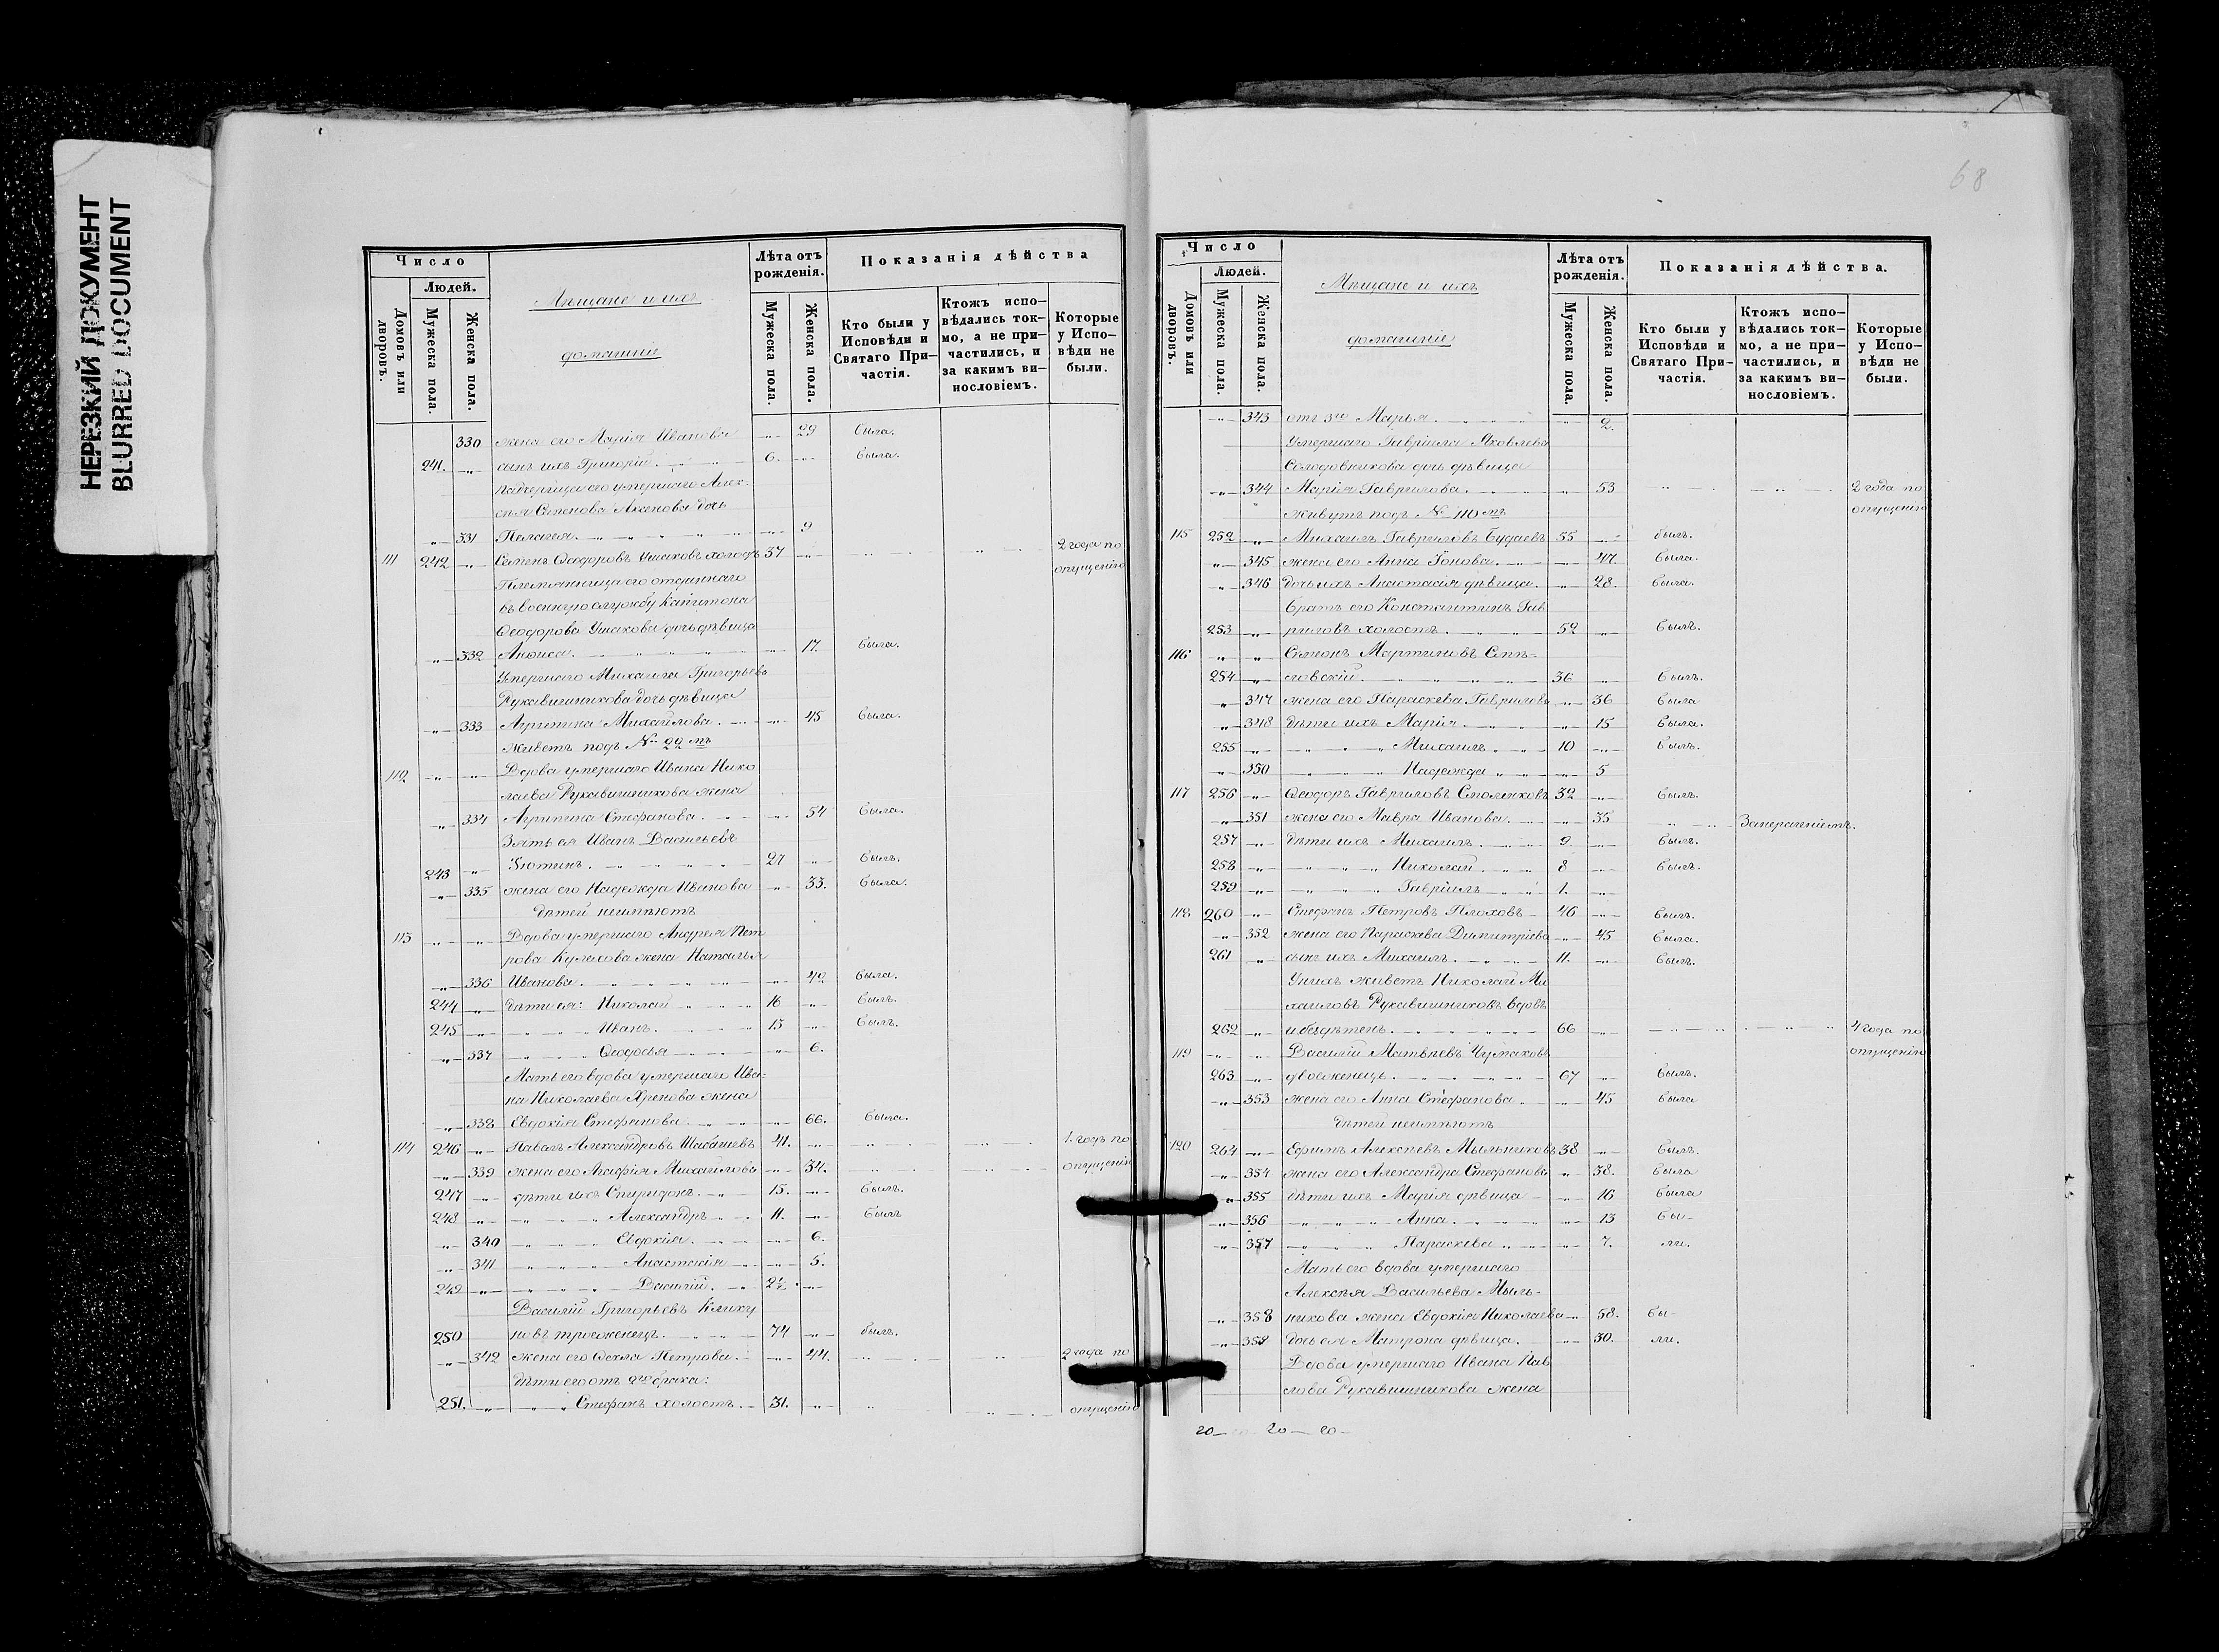 НЕРЕЗКИЙ ДОКУМЕНТ
BLURRED DOCUMENT
Число
Людей.
Домовъ или дворовъ.
Мужеска пола.
Женска пола.
Мѣщане и ихъ
домашніе
Лѣта отъ рожденія.
Мужеска пола.
Женска пола.
Показанія дѣйства
Кто были у Исповѣди и Святаго Причастія.
Ктожъ исповѣдались токмо, а не причастились, и за какимъ винословіемъ.
Которые у Исповѣди не были.
330 жена его Марія Иванова 29 была.
241. сынъ ихъ Григорій 6. былъ.
Падчерица его умершаго Алек-
сѣя Семенова Аксенова дочь
331 Пелагея 9
111 242 Семенъ Ѳеодоровъ Ушаковъ холостъ 57 2 года по
опущенію
Племянница его отданнаго
въ военную службу Капитона
Ѳеодорова Ушакова дочь дѣвица
332 Анѳиса. 17. была.
Умершаго Михаила Григорьева
Рукавишникова дочь дѣвица
333 Агрипина Михайлова. 45 была.
Живетъ подъ № 22 мъ
112 Вдова умершаго Ивана Нико
лаева Рукавишникова жена
334 Агрипина Стефанова. 54 была.
Зять ея Иванъ Васильевъ
243 Зютинъ. 27 былъ.
335 жена его Надежда Иванова 33. была.
дѣтей неимѣютъ
113 Вдова умершаго Андрея Пет
рова Кулахова жена Наталья
336 Иванова. 42 была.
244 дѣти ея: Николай 16 былъ.
245 Иванъ. 15 былъ.
337 Ѳеодосья 6.
Мать его вдова умершаго Ива-
на Николаева Хренова жена
338 Евдокія Стефанова. 66. была.
114 246 Павелъ Александровъ Шабашевъ 41. 1. годъ по
339 жена его Агафія Михайлова 34. опущенію
247 дѣти ихъ Спиридонъ. 15. былъ.
248 Александръ 11. былъ
340 Евдокія. 6.
341 Анастасія 5.
249 Василій. 2½
Василій Григорьевъ Кляку
250 новъ троеженецъ. 74 былъ.
342 жена его Ѳекла Петрова. 44. 2 года по
дѣти его отъ 2го брака:
251. Стефанъ холостъ. 31. опущенію
68
Число
Людей.
Домовъ или дворовъ.
Мужеска пола.
Женска пола.
Мѣщане и ихъ
домашніе
Лѣта отъ рожденія.
Мужеска пола.
Женска пола.
Показанія дѣйства.
Кто были у Исповѣди и Святаго Причастія.
Ктожъ исповѣдались токмо, а не причастились, и за какимъ винословіемъ.
Которые у Исповѣди не были.
343 отъ 3го Марья 2.
Умершаго Гавріила Яковлева
Солодовникова дочь дѣвица
344 Марія Гаврилова. 53 2 года по
опущенію
Живутъ подъ № 110 мъ
115 252 Михаилъ Гавриловъ Будаевъ 55 былъ.
345 жена его Анна Іонова. 47. была.
346 дочь ихъ Анастасія дѣвица. 28. была.
Братъ его Константинъ Гав
253 риловъ холостъ. 52 былъ.
116 Симеонъ Мартиновъ
254 ловскій. 36 былъ.
347 жена его Параскева Гаврилова 36 была
348 дѣти ихъ Марія. 15 была.
255 Михаилъ 10 былъ.
350 Надежда 5
117 256 Ѳеодоръ Гавриловъ Смоленковъ 32 былъ.
351 жена его Мавра Иванова. 35
257 дѣти ихъ Михаилъ 9 былъ.
258 Николай 8 былъ.
259 Гавріилъ 1.
118 260 Стефанъ Петровъ Плоховъ 46 былъ.
352 жена его Параскева Димитріева 45 была.
261 сынъ ихъ Михаилъ. 11. былъ.
Унихъ живетъ Николай Ми
хаиловъ Рукавишниковъ вдовъ
262 и бездѣтенъ. 66 4 года по
опущенію
119 Василій Матвѣевъ Чумаковъ
263 двоеженецъ. 67 былъ.
353 жена его Анна Стефанова 45 была
дѣтей неимѣютъ
120 264 Ефимъ Алексѣевъ Мыльниковъ 38 былъ.
354 жена его Александра Стефанова 38. была
355 дѣти ихъ Марія дѣвица 16 была
356 Анна. 13 бы-
357 Параскева 7. ли.
Мать его вдова умершаго
Алексѣя Васильева Мыль-
358 никова жена Евдокія Николаева 58. бы-
358 дочь ея Матрона дѣвица. 30. ли.
Вдова умершаго Ивана Пав
лова Рукавишникова жена
20 20 20